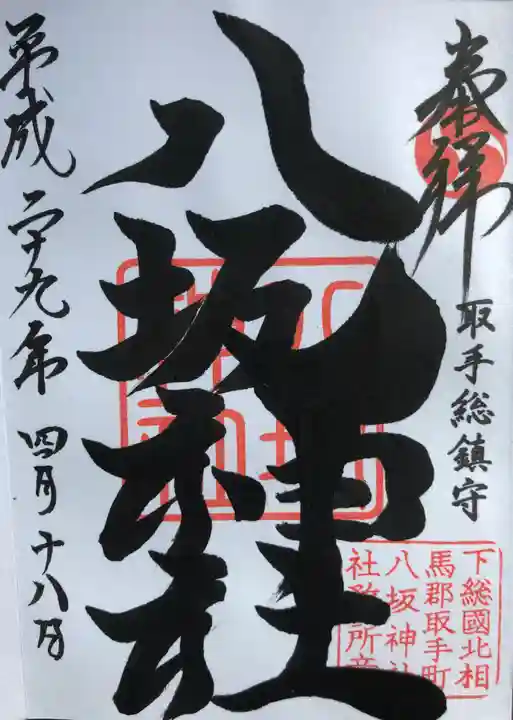 奉拝
取手総鎮守
下総國北相
馬郡取手町
八坂神社
社務所章
八坂神社
平成二十九年 四月十八日